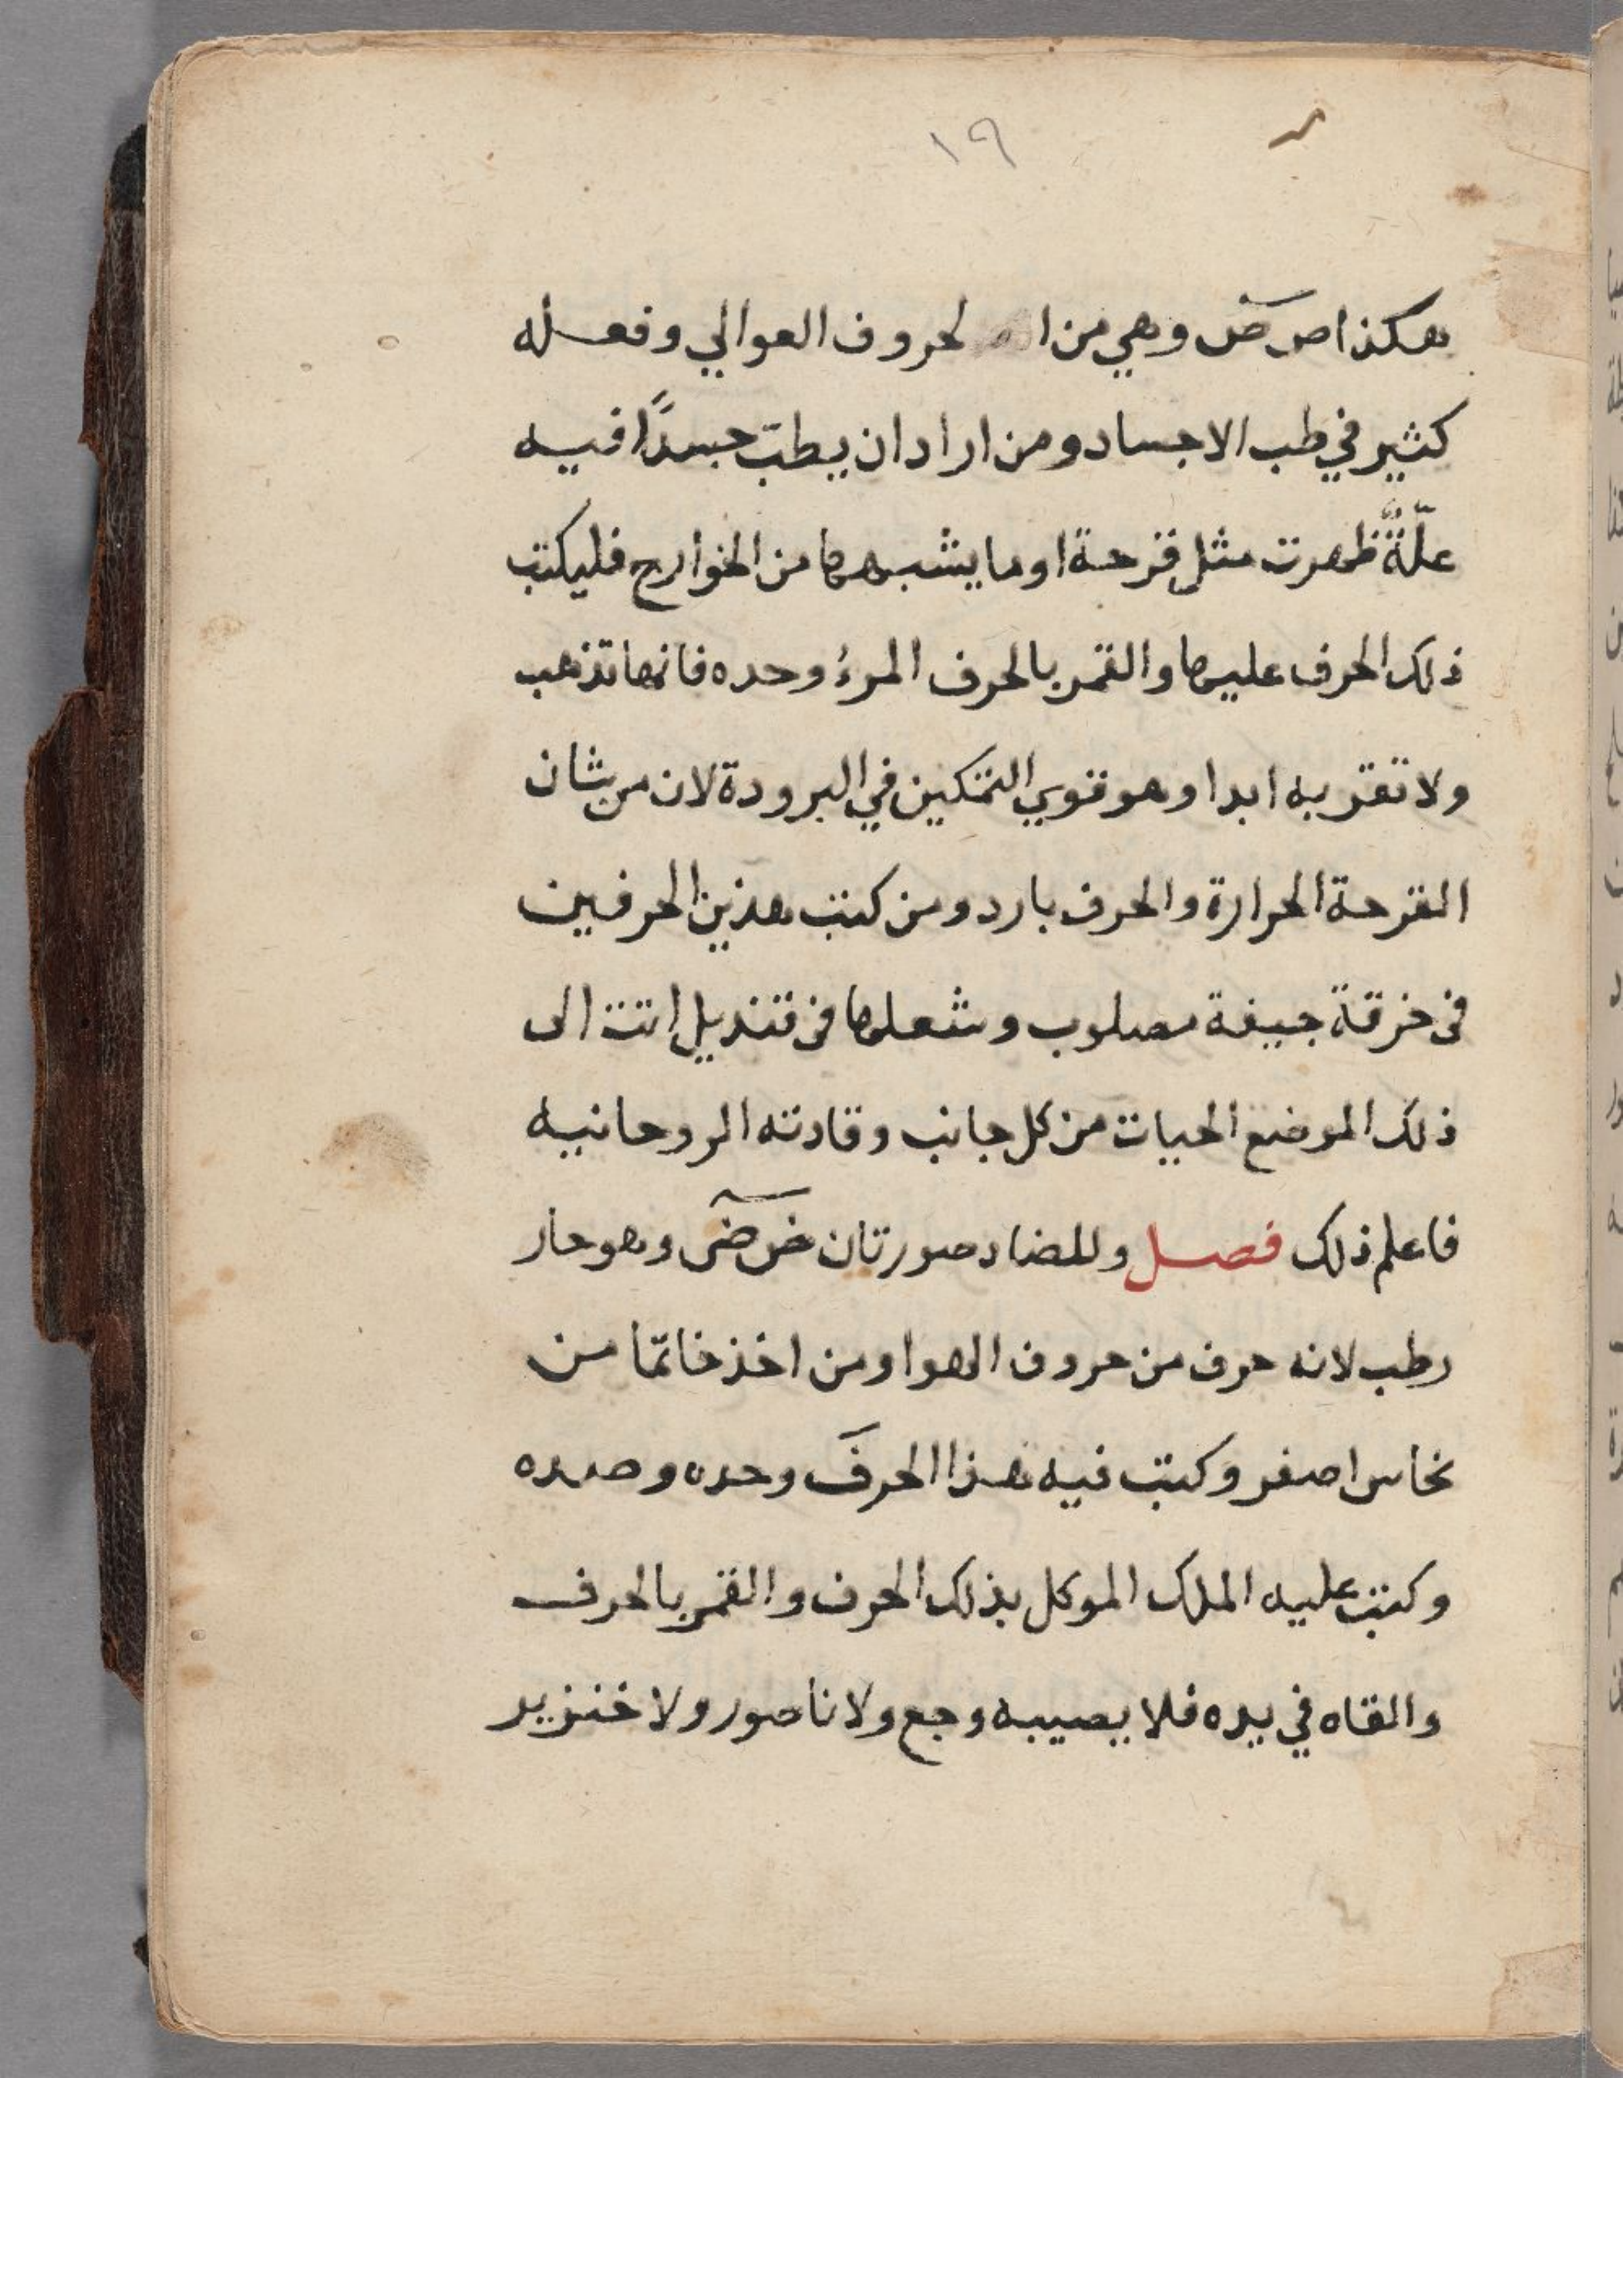 ١٩
هكذا ص ص وهي من الحروف العوالي وفعله
كثير في طب الاجساد ومن اراد ان يطبّ جسدًا فيه
علّةٌ ظهرت مثل قرحة او ما يشبهها من الخوارج فليكتب
ذلك الحرف عليها والقمر بالحرف المرءُ وحده فانها تذهب
ولا تقربه ابدا وهو قوي التمكين في البرودة لان من شان
القرحة الحرارة والحرف بارد ومن كتب هذين الحرفين
فى خرقة جيفة مصلوب وشعلها فى قنديل اتت الى
ذلك الموضع الحيات من كل جانب وقادته الروحانيه
فاعلم ذلك فصل وللضاد صورتان ض ض وهو حار
رطب لانه حرف من حروف الهوا ومن اخذ خاتمًا من
نحاس اصفر وكتب فيه هذا الحرفَ وحده وصيده
وكتب عليه الملك الموكل بذلك الحرف والقمر بالحرف
والقاه في يده فلا يصيبه وجع ولا ناصور ولا خنزير